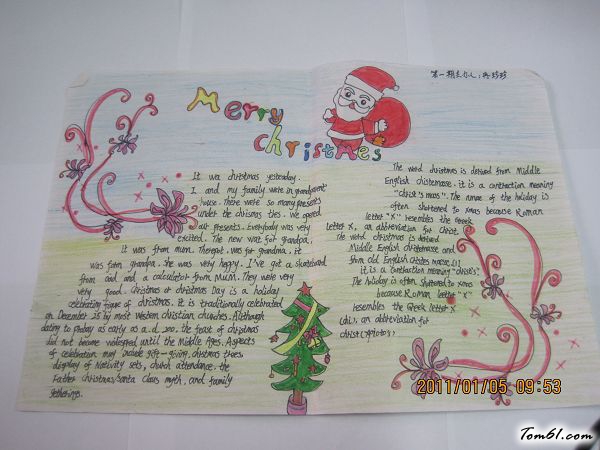 Merry
christmes
第一期主办人:
It was christmas yesterday.
I and my family were in grandparent
house. There were so many presents
under the chrismas ties. We opened
our presents. Everybody was very
excited. The new wat for grandpa,
It was from mum. There pot. was for grandma, it
was form grandpa. She was very happy. I've got a skateboard
from dad and a calculator from MUM. They were very
very good. Christmas or christmas Day is a holiday
celebrating of christmas. it is traditionally celebrated
on December 25 by most Western christian churches. Although
dating to ploday as early as a.d 200. the feast of christmas
did not become widespread until the Middle Ages. Aspects
of celebration may include gift-giving, christmas trees,
display of Nativity sets, church attendance. the
Father christmas/santa claus myth, and family
gatherings.
The word christmas is derived from Middle
English christemasse. it is a contraction meaning
"christ's mass". The name of the holiday is
often shortened to xmas because Roman
letter "X" resembles the Greek
letter X, an abbreviation for Christ.
The word christmas is derived
Middle English christemasse and
from old English christes maesse.[1]
it is a contraction meaning "christ's".
The holiday is often shortened to xmas
because Roman letter "X"
resembles the Greek letter X
(chi), an abbreviation for
christ
2011/01/05 09:53
Tom61.com